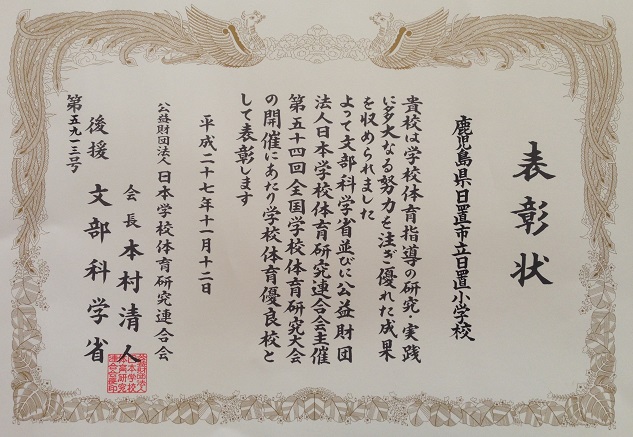 表彰状
鹿児島県日置市立日置小学校
貴校は学校体育指導の研究・実践
に多大なる努力を注ぎ優れた成果
を収められました
よって文部科学省並びに公益財団
法人日本学校体育研究連合会主催
第五十四回全国学校体育研究大会
の開催にあたり学校体育優良校と
して表彰します
平成二十七年十一月十二日
公益財団法人日本学校体育研究連合会
会長本村清人
後援文部科学省
第五九一三号